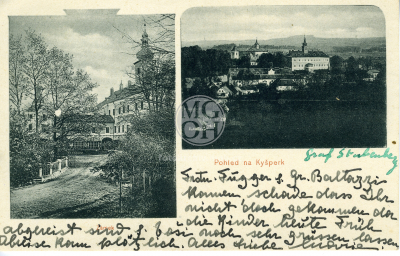 MG
Pohled na Kyšperk
Graf Stubenberg
Frau Fugger & Gr. Baltazzi
kommen, schade dass Ihr
nicht doch gekommen da
die Kinder heute Früh
abgereist sind. so noch sehr grüssen lassen
Adieu komm plötzlich. Alles Liebe